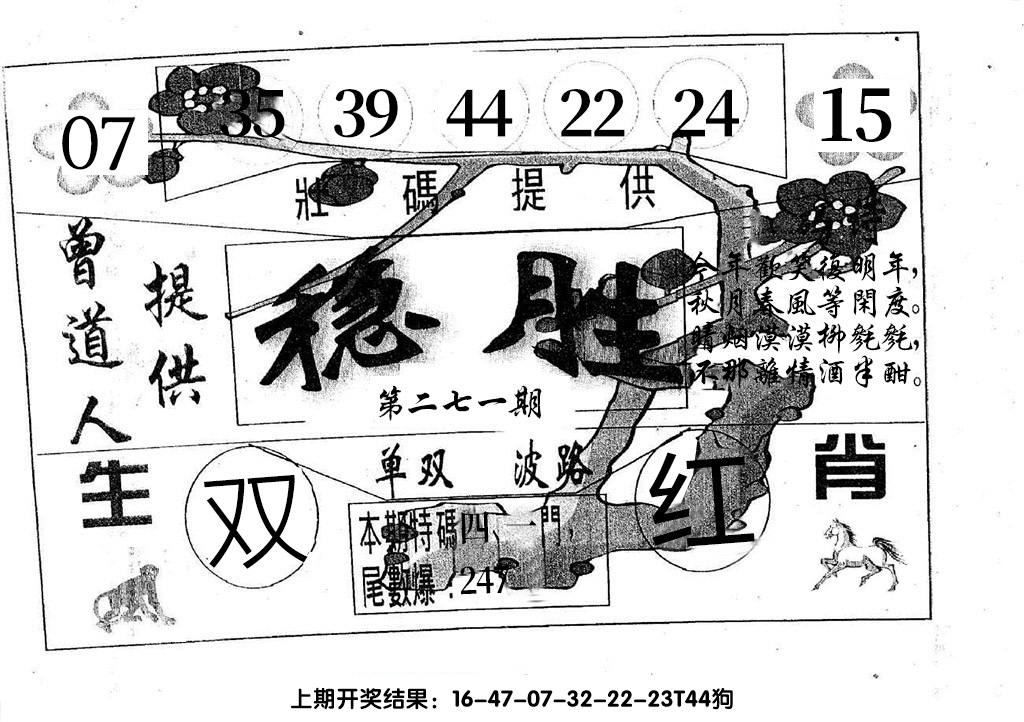 07 35 39 44 22 24 15
壯碼提供
曾道人
提供
稳胜
第二七一期
今年歡笑復明年，
秋月春風等閑度。
晴烟漠漠柳毿毿，
不那離情酒半酣。
单双 波路
生 肖
双 红
本期特碼四、一門，
尾數爆：247
上期开奖结果：16-47-07-32-22-23T44狗